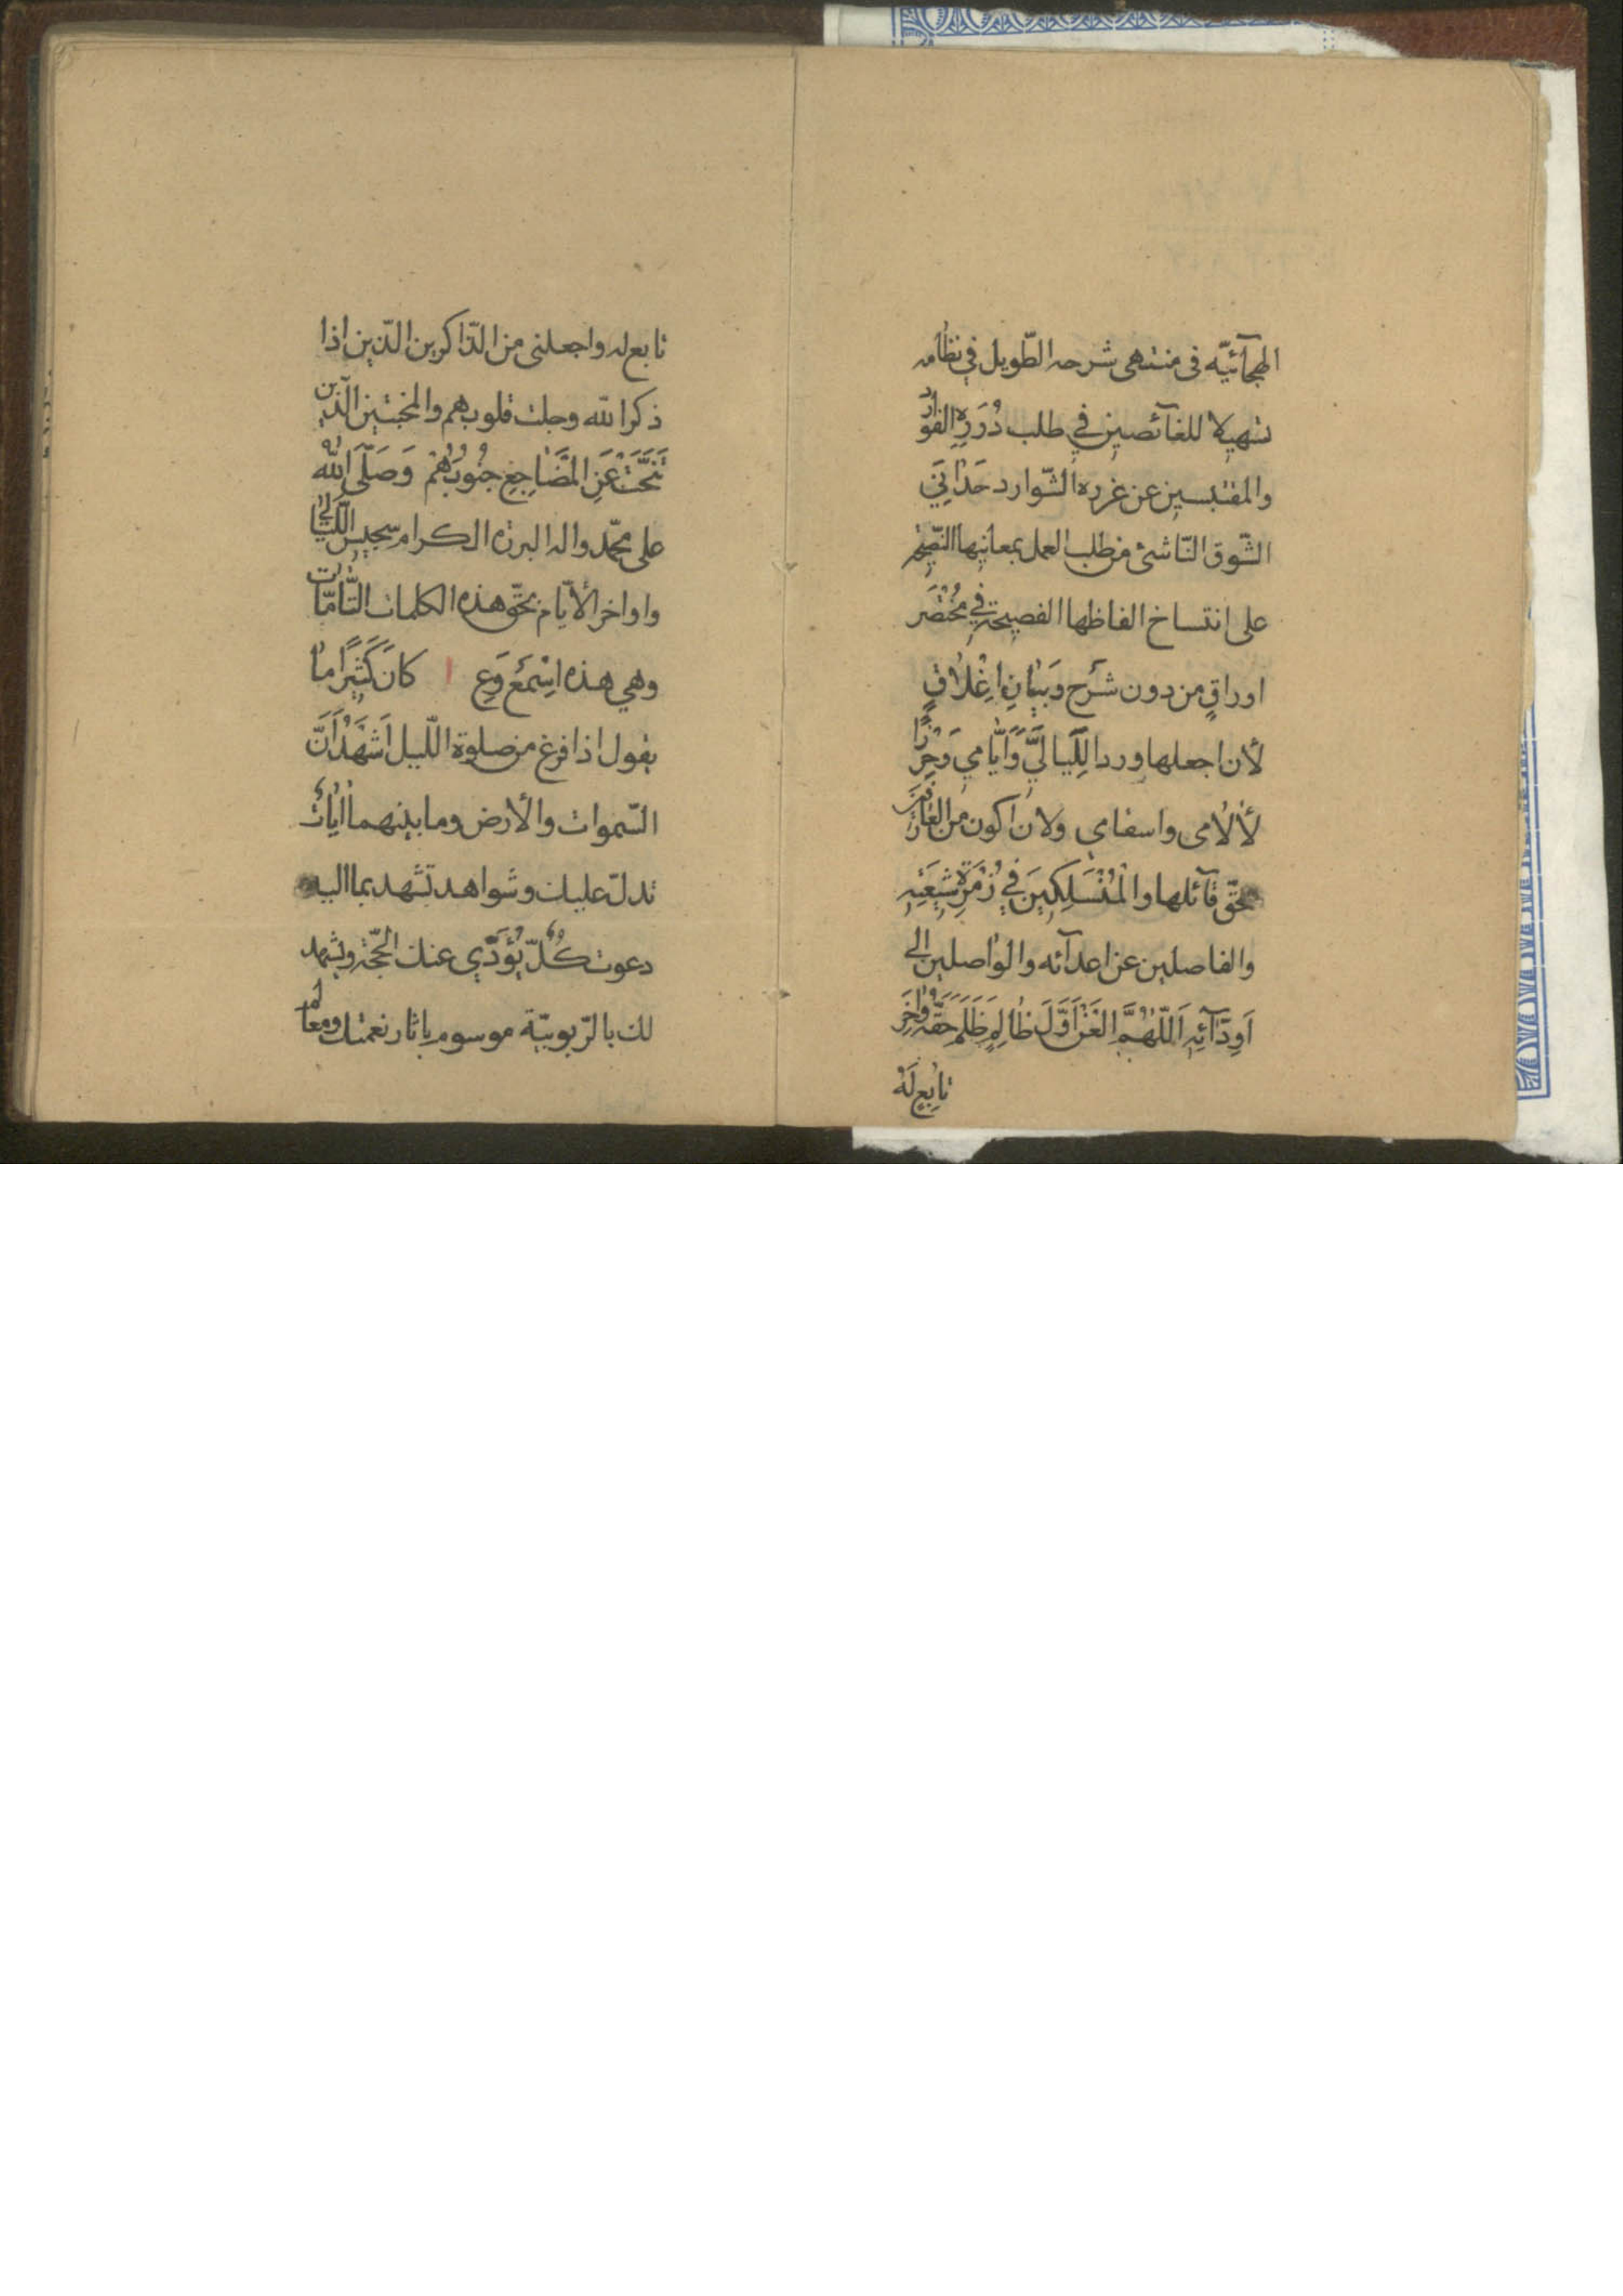 الهجآئيّه فى منتهى شرحه الطّويل في نظامه
تسهيلا للغآئصين في طلب دُرَرِهِ الفوارد
والمقتبسين عن غرره الشّوارد حَدَاني
الشّوق النّاشئ من طلب العمل بمعانيها النّصيحة
على انتساخ الفاظها الفصيحة في مُخْتَصَر
اوراقٍ من دون شَرْحٍ وَبَيانِ اِغْلاقٍ
لأن اجعلها وردا لِلَيالِيَّ وَاَيّامي وَحِرْزًا
لألامى واسقامي ولان اكون من الفائزين
بحقّ قآئلها وَالْمُنْسَلِكينَ في زُمْرَةِ شيعَتِهِ
والفاصلين عن اعدآئه والواصلين الى
اَوِدّآئِهِ اَللّهُمَّ الْعَنْ اَوَّلَ ظالِمٍ ظَلَمَ حَقَّهُ وَاخِرَ
تابِعٍ لَهُ
تابع له واجعلنى من الذّاكرين الّذين اذا
ذكر الله وجلت قلوبهم والمخبتين الّذين
تَنَحَّتْ عَنِ الْمَضاجِعِ جُنُوبُهُمْ وَصَلَّى اللهُ
على محمّد واله البررة الكرام سجيس اللّيالي
واواخر الأيّام بحقّ هذه الكلمات التّامّات
وهي هذه اِسْمَعْ وَعِ ا كانَ كَثيرًا ما
يقول اذا فرغ من صلوة اللّيل اَشْهَدُ اَنَّ
السّموات والأرض وما بينهما اياتٌ
تدلّ عليك وشواهد تشهد بما اليه
دعوت كُلٌّ يُؤَدّي عنك الحجّة ويشهد
لك بالرّبوبيّة موسوم باثار نعمتك ومعالم